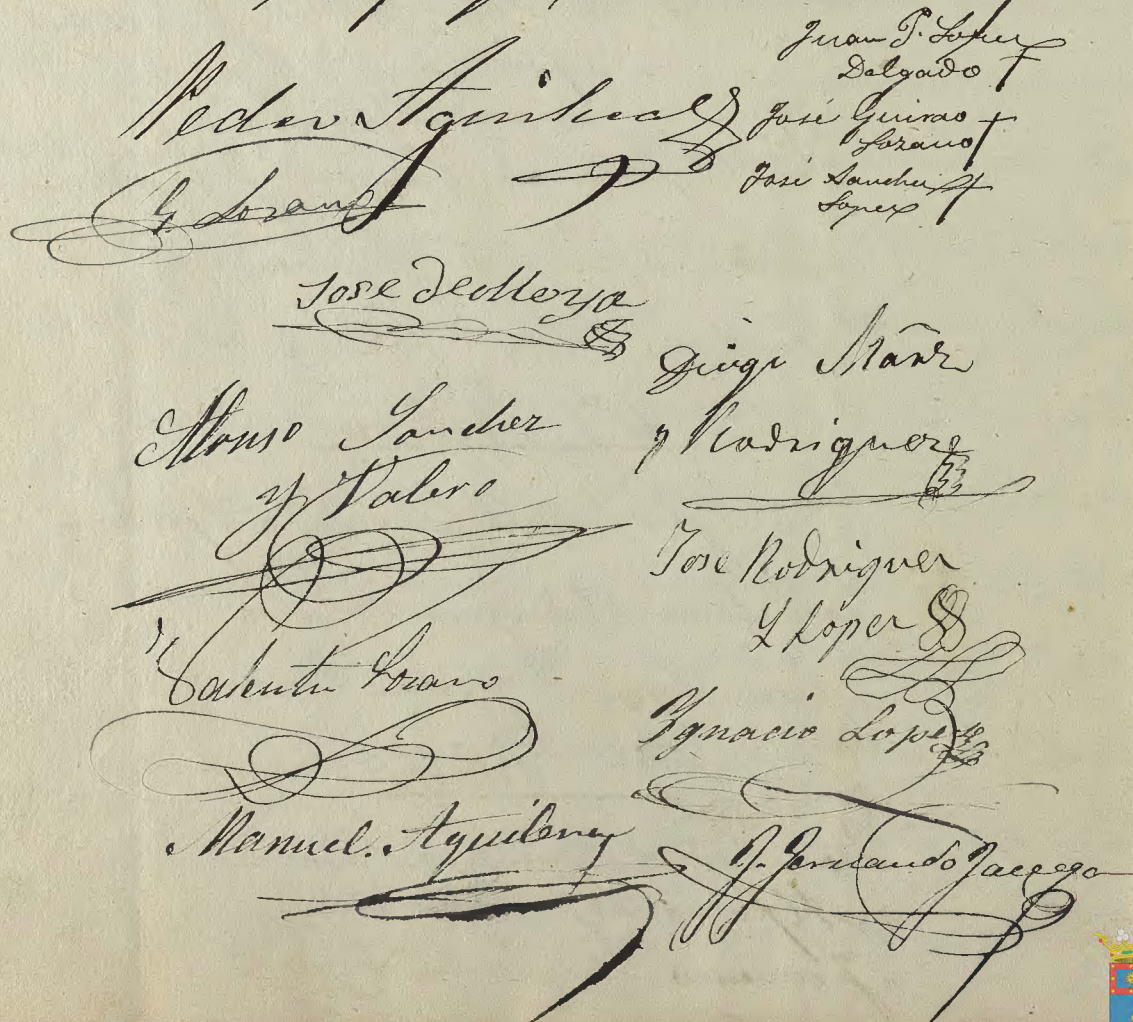 Juan P. Lopez
Delgado
Pedro Aguilera
José Guirao
Lozano
José Sanchez
Lopez
G. Lozano
Jose de Moya
Diego Mãrz
y Rodriguez
Alonso Sanchez
y Valero
Jose Rodriguez
Y Lopez
Valentin Lozano
Ygnacio Lopez
Manuel Aguilera
J. Fernando